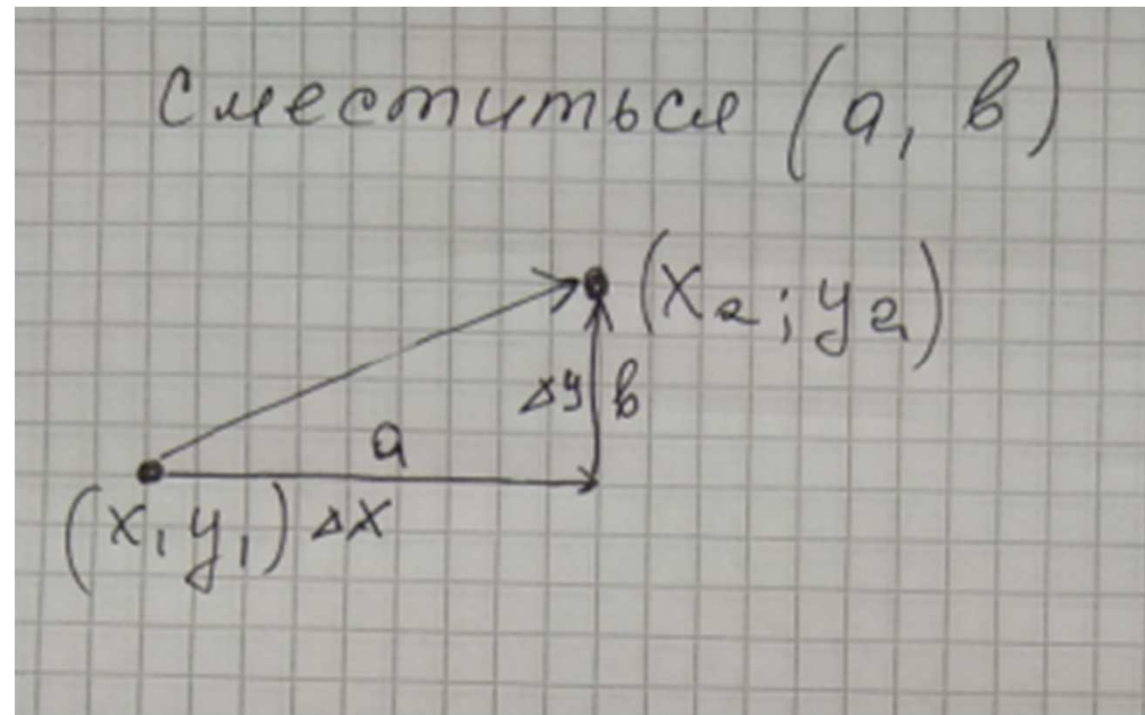 сместиться (a, b)
(x₂; y₂)
Δy b
a
(x₁ y₁) Δx